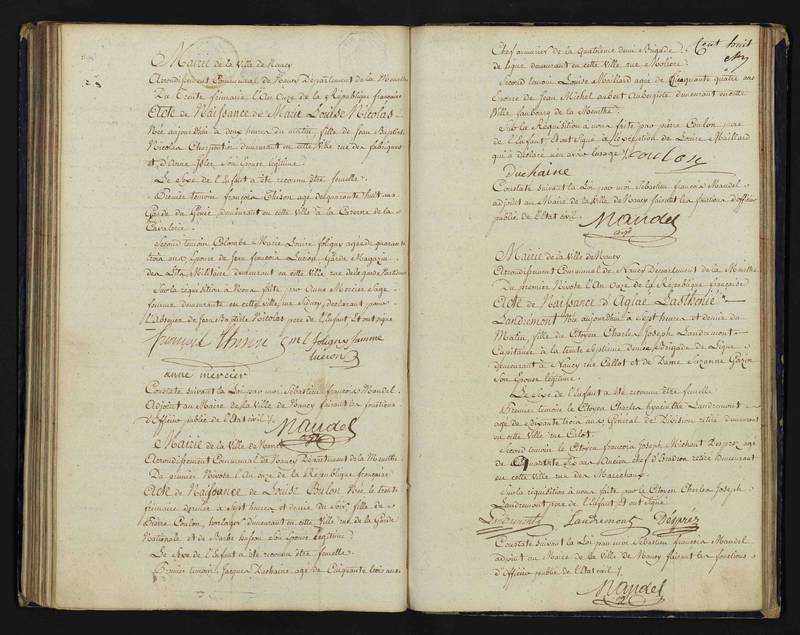 Mairie de la Ville de Nancy
Arrondissement Communal de Nancy Département de la Meurthe
Du trente frimaire l'An Onze de la République française
Acte de Naissance de Marie Louise Nicolas
Née aujourd'hui à deux heures du matin, fille de Jean Baptiste
Nicolas Charpentier demeurant en cette Ville rue des fabriques
et d'Anne son Epouse légitime
Le Sexe de l'Enfant a été reconnu être femelle.
Premier témoin françois Thirion agé de quarante huit ans
Garde du Génie, demeurant en cette Ville à la Caserne de la
Cavalerie.
Second témoin Colombe Marie Louise foligny agée de quarante
trois ans Epouse de Jean françois Lucion, Garde Magazin
des Lits Militaires demeurant en cette Ville rue
Sur la réquisition à Nous faite par Anne Mercier Sage
femme demeurante en cette Ville, rue Sidney, déclarant pour
l'Absence de Jean Baptiste Nicolas pere de l'Enfant, Et ont signé
françois Thirion C M L foligny femme
Lucion
anne mercier
Constaté suivant la Loi par moi Sébastien françois Mandel
Adjoint au Maire de la Ville de Nancy faisant les fonctions
d'Officier public de l'Etat civil
Mandel
adjt
Mairie de la Ville de Nancy
Arrondissement Communal de Nancy Département de la Meurthe
Du premier Nivôse l'An onze de la République française
Acte de Naissance de Louise Coulon Née le trente
frimaire dernier à Sept heures et demie du Soir, fille de
Pierre Coulon, horloger demeurant en cette Ville rue de la Garde
Nationale et de Barbe son Epouse légitime
Le Sexe de l'Enfant a été reconnu être femelle
Premier témoin Jacques Duchaine agé de Cinquante trois ans
Cent huit
Chef armurier de la Quatrieme demi Brigade
de ligne demeurant en cette ville rue Moliere
Second témoin Louise Maillard agée de Cinquante quatre ans
Epouse de Jean Michel aubert aubergiste demeurant en cette
Ville, faubourg de la Meurthe
Sur la Réquisition à nous faite par pierre Coulon, pere
de l'Enfant, Et ont Signé à l'Exception de Louise Maillard
qui a déclaré n'en avoir l'usage Coulon
Duchaine
Constaté suivant la Loi par moi Sébastien françois Mandel
adjoint au Maire de la Ville de Nancy faisant les fonctions d'officier
public de l'Etat civil
Mandel
adjt
Mairie de la Ville de Nancy
Arrondissement Communal de Nancy Département de la Meurthe
Du premier Nivôse l'An Onze de la République française
Acte de Naissance d'Aglaé Lasthenie
Landremont Née aujourd'hui à Sept heures et demie du
Matin, fille du Citoyen Charles Joseph Landremont
Capitaine à la trente Septieme demie Brigade de Ligne
demeurant à Nancy rue Callot et de Dame Suzanne
Son Epouse légitime.
Le Sexe de l'Enfant a été reconnu être femelle
Premier témoin le Citoyen Charles hyacinthe Landremont
agé de Soixante trois ans Général de Division retiré demeurant
en cette Ville rue Calot.
Second témoin le Citoyen françois Joseph Michaut Desprez agé
de Cinquante six ans Ancien chef d'Escadron retiré Demeurant
en cette ville rue des Marechaux
Sur la réquisition à nous faite par le Citoyen Charles Joseph
Landremont, pere de l'Enfant, et ont signé
Landremont Landremont Désprés
Constaté suivant la Loi par moi Sébastien françois Mandel
adjoint au Maire de la Ville de Nancy faisant les fonctions
d'Officier public de l'Etat civil
Mandel